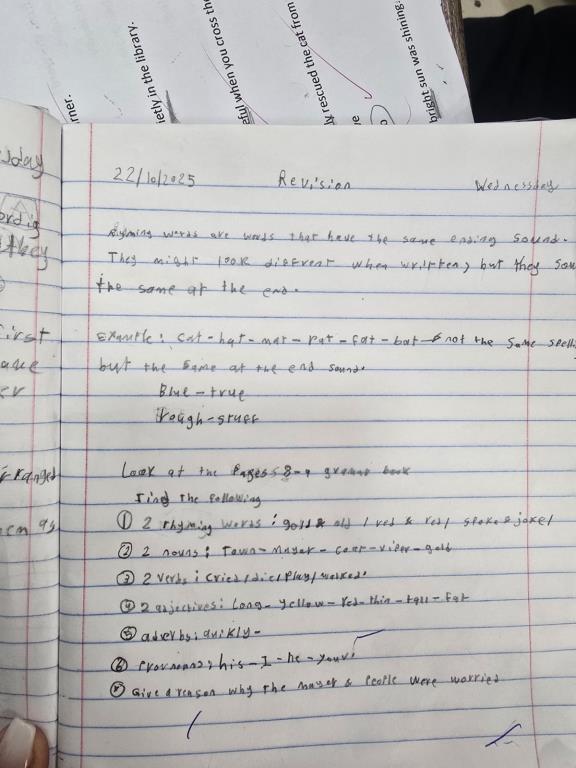 rner.
ietly in the library.
eful when you cross th
ly rescued the cat from
ve
bright sun was shining.
sday
ordig
they
first
ave
er
rranged
em as
22/10/2025 Revision Wednesday
Ryming words are words that have the same ending sound.
They might look diffrent when written, but they sou
the same at the end.
Example: cat-hat-mat-rat-fat-bat not the same spelli
but the same at the end sound.
Blue-true
Rough-stuff
Look at the Pages 8-9 grammar book
Find the following
① 2 rhyming words: gold & old / red & red/ spoke & joke/
② 2 nouns: Town-Mayor- -viper-gold
③ 2 verbs: cried/dice/play/worked.
④ 2 adjectives: Long-yellow-red-thin-tall-fat
⑤ adverbs: quikly-
⑥ his-I-he-your.
⑦ Give a reason why the mayer & People were worried